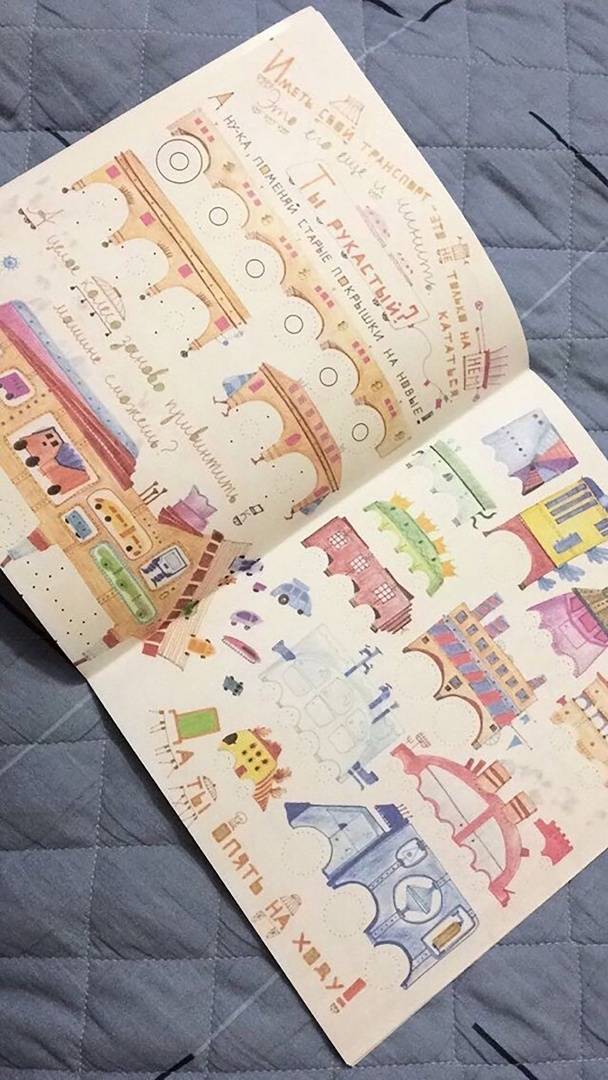 Иметь свой транспорт - это не только на нём кататься.
Это его ещё и чинить
Ты рукастый?
А ну-ка, поменяй старые покрышки на новые!
А целое колесо заново привинтить
машине сможешь?
А ты опять на ходу!